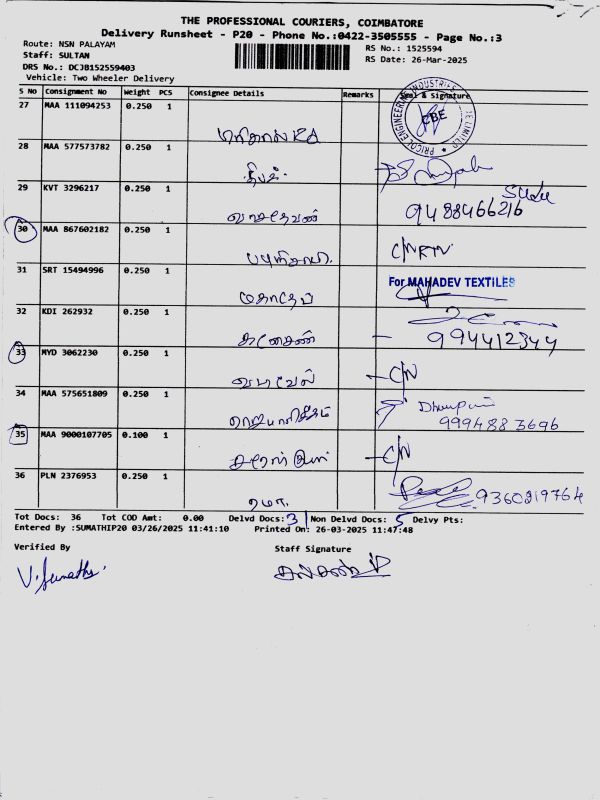 THE PROFESSIONAL COURIERS, COIMBATORE
Delivery Runsheet - P20 - Phone No.:0422-3505555 - Page No.:3
Route: NSN PALAYAM
RS No.: 1525594
Staff: SULTAN
RS Date: 26-Mar-2025
DRS No.: DCJB152559403
Vehicle: Two Wheeler Delivery
S No Consignment No Weight PCS Consignee Details Remarks Seal & Signature
27 MAA 111094253 0.250 1
PRICOL ENGINEERING INDUSTRIES LIMITED
CBE
28 MAA 577573782 0.250 1
தீபக்.
29 KVT 3296217 0.250 1
வாசுதேவன் 9488466216
30 MAA 867602182 0.250 1
C/N RTN
31 SRT 15494996 0.250 1
For MAHADEV TEXTILES
மகாதேவ்
32 KDI 262932 0.250 1
கணேசன் - 994412344
33 MYD 3062230 0.250 1
வடிவேல் - C/N
34 MAA 575651809 0.250 1
9994883696
35 MAA 9000107705 0.100 1
- C/N
36 PLN 2376953 0.250 1
ரமா. 9360219764
Tot Docs: 36 Tot COD Amt: 0.00 Delvd Docs: 31 Non Delvd Docs: 5 Delvy Pts:
Entered By :SUMATHIP20 03/26/2025 11:41:10 Printed On: 26-03-2025 11:47:48
Verified By Staff Signature
V. Sumathi.